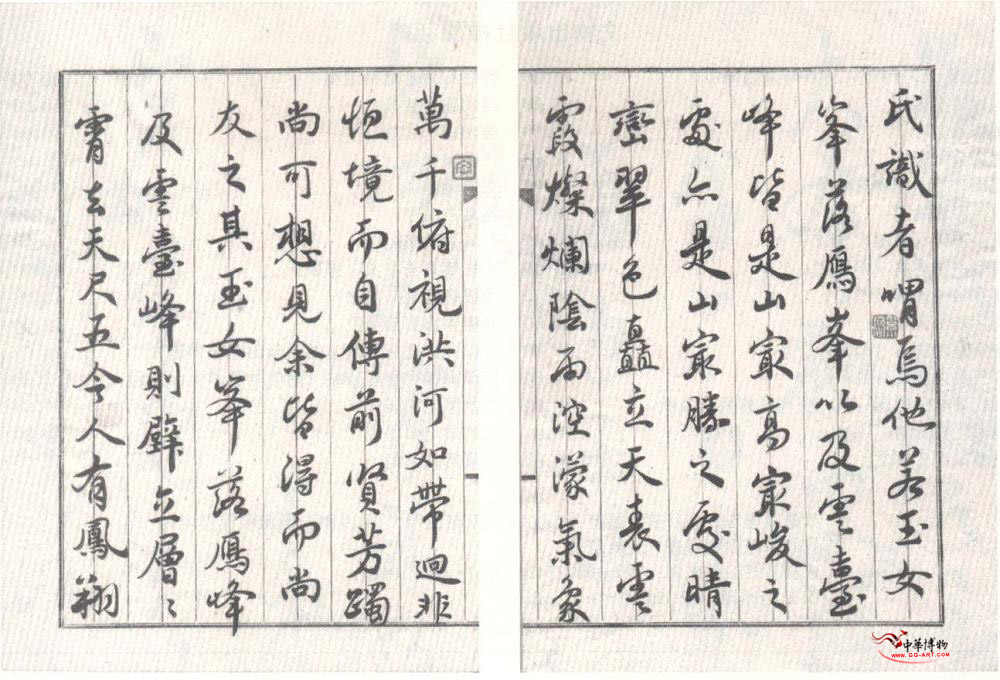 氏識者喟焉他若玉女
峯落鴈峯以及雲臺
峰皆是山㝡高㝡峻之
處亦是山㝡勝之處晴
巒翠色矗立天表雲
霞燦爛陰雨涳濛氣象
萬千俯視洪河如帶迥非
恒境而自傳前賢芳躅
尚可想見余皆得而尚
友之其玉女峯落鴈峰
及雲臺峰則壁立層〻
霄去天尺五令人有鳳翔
中華博物
WWW.GG-ART.COM